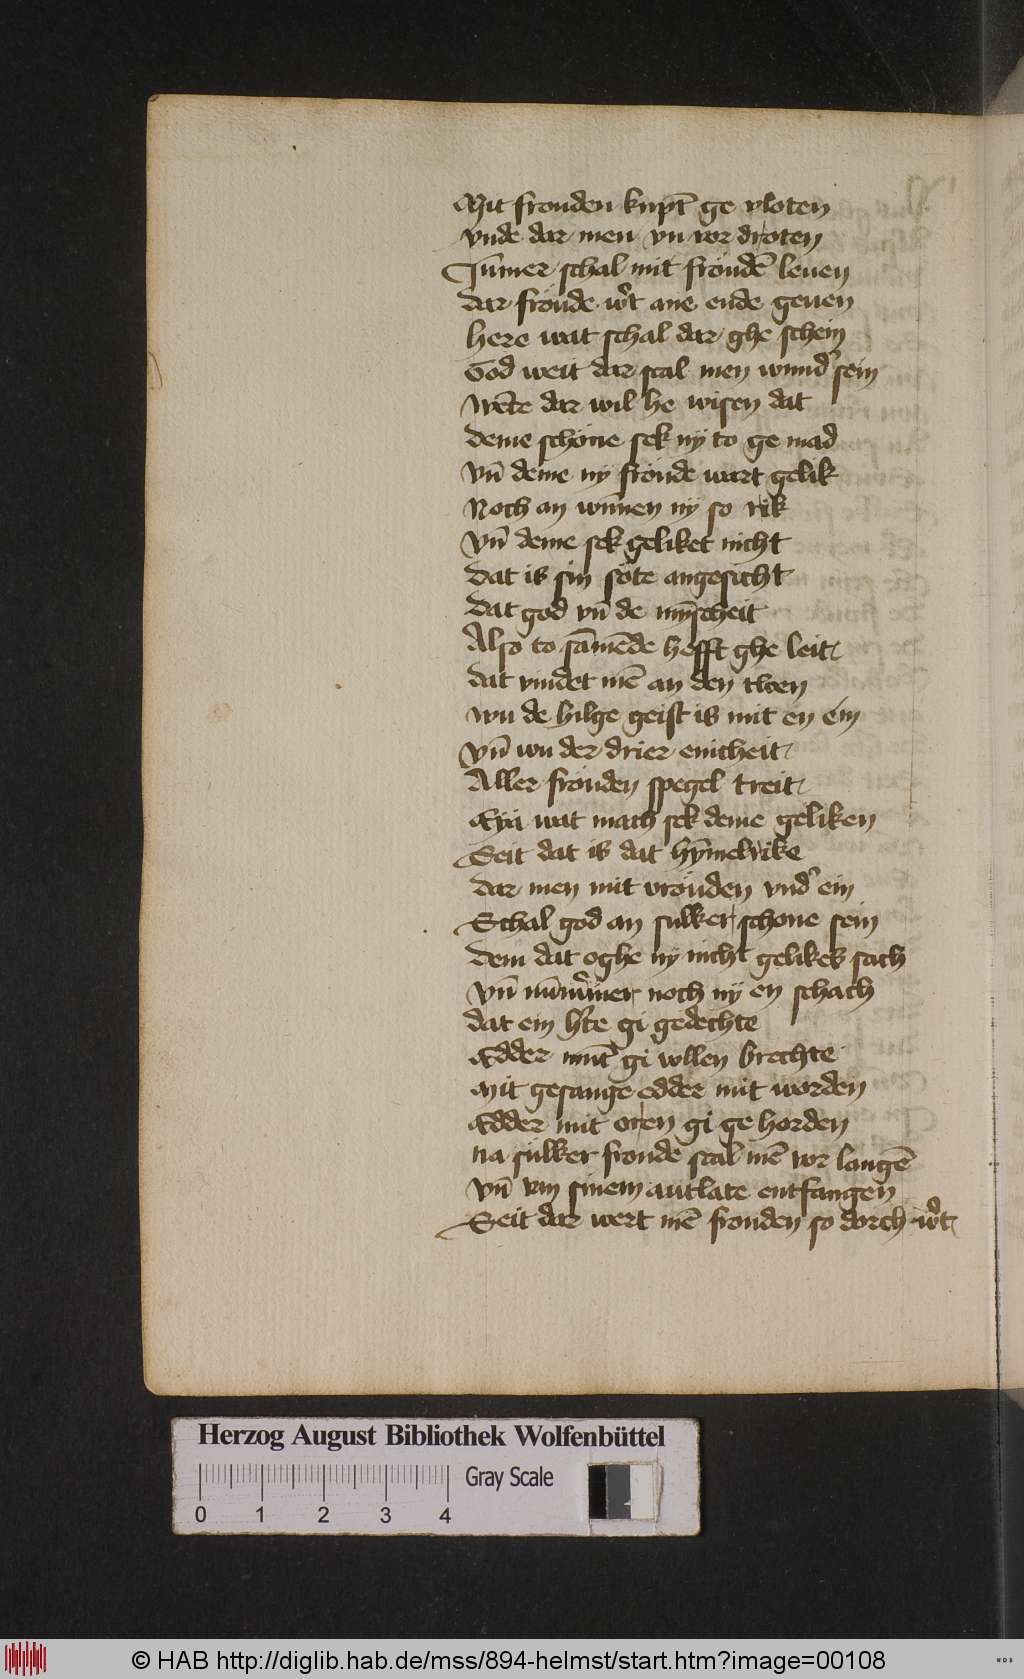 Mit frouden kupt̄ ge vloten
vnde dar men vn vor droten
Jūmer schal mit frouden̄ leuen
dar froude wͤt ane ende geuen
here wat schal dar ghe schein
God weit dar scal men wundͤ sein
wēte dar wil he wisen dat
deme schöne sek ny to ge mad
vn̄ deme ny froude wart gelik
Noch an wn̄nen ny so rik
vn̄ deme sek geliket nicht
dat is sin söte angesicht
dat god vn̄ de mȳscheit
Also to sāmēde hefft ghe leit
dat vindet mē an den twen
wu de hilge geist is mit en ein
vn̄ wu der drier enicheit
Aller frouden spegel treit
Eya wat mach sek deme geliken
Seit dat is dat hȳmelrike
dar men mit vrouden vndͤ ein
Schal god an sulker schone sein
dem dat oghe ny nicht gelikes sach
vn̄ nūmmer noch ny en schach
dat ein hͤte gi gedechte
Edder mūt gi vollen brechte
Mit gesange edder mit worden
Edder mit oren gi ge horden
na sulker froude scal mē vor langē
vn̄ van sinem antlate entfangen
Seit dar wert mē frouden so dorch wͤt
Herzog August Bibliothek Wolfenbüttel
Gray Scale
0 1 2 3 4
© HAB http://diglib.hab.de/mss/894-helmst/start.htm?image=00108